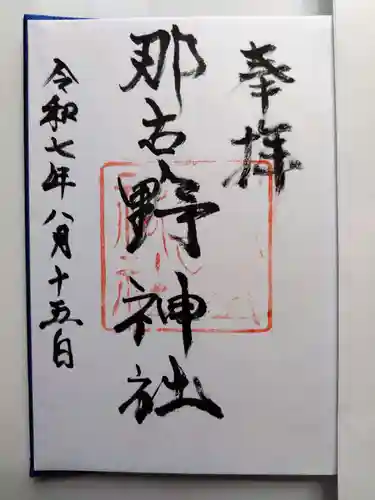 奉拝
那古野神社
令和七年八月十五日